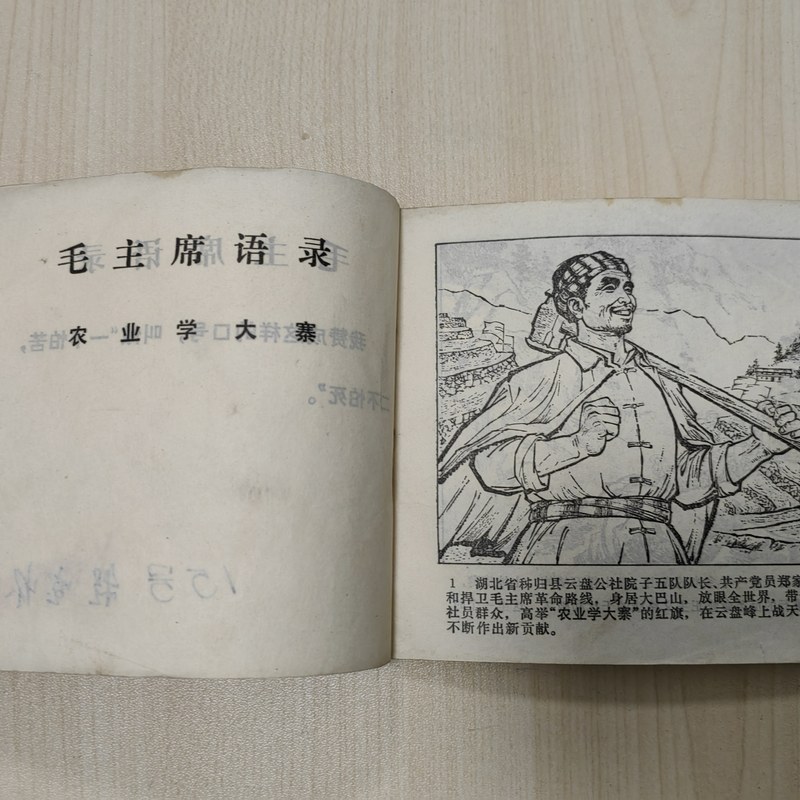 毛主席语录
农业学大寨
我赞成这样的口号，叫做“一不怕苦，
二不怕死”。
1 湖北省秭归县云盘公社院子五队队长、共产党员郑家
和捍卫毛主席革命路线，身居大巴山，放眼全世界，带
社员群众，高举“农业学大寨”的红旗，在云盘峰上战天
不断作出新贡献。